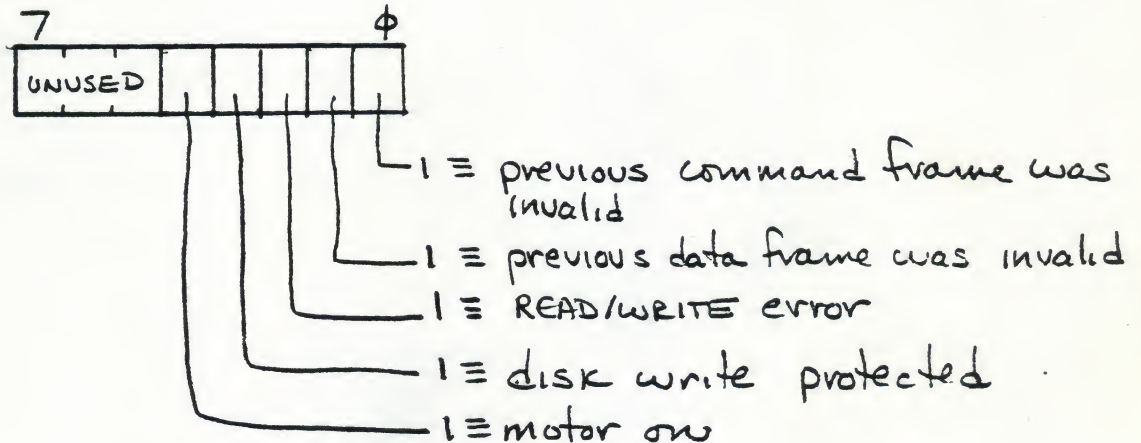 7 φ
UNUSED
1 ≡ previous command frame was
invalid
1 ≡ previous data frame was invalid
1 ≡ READ/WRITE error
1 ≡ disk write protected
1 ≡ motor on